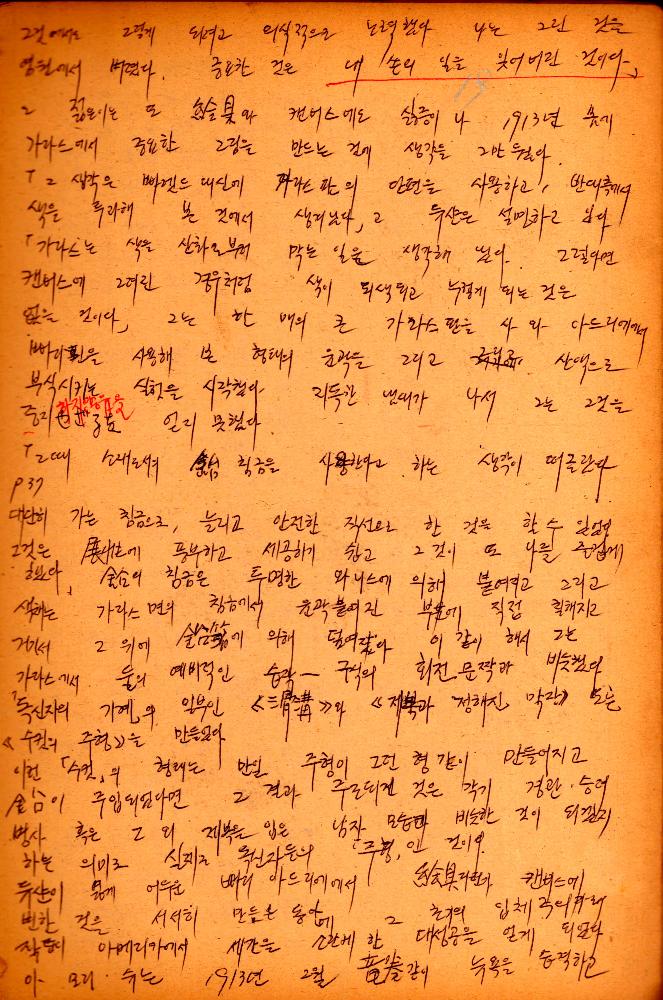 그것에서도 그렇게 되려고 의식적으로 노력했다 나는 그린 것을
영원에서 버렸다. 중요한 것은 내 손의 일을 잊어버린 것이다.」
2 젊은이는 또 絵具와 캔버스에도 싫증이 나 1913년 봄에
가라스에서 중요한 그림을 만드는 것에 생각을 그만 두었다.
「그 생각은 빠렛드 대신에 가라스판의 안편을 사용하고, 반대측에서
색을 투과해 본 것에서 생겨났다,고 듀샨은 설명하고 있다
「가라스는 색을 산화로부터 막는 일을 생각해 냈다. 그렇다면
캔버스에 그려진 경우처럼 색이 퇴색되고 누렇게 되는 것은
없을 것이다」 그는 한 매의 큰 가라스판을 사 와 아드리에에서
빠라핀을 사용해 본 형태의 윤곽을 그리고 산액으로
부식시키는 실험을 시작했다. 지독한 냄새가 나서 그는 그것을
중지 얻지 못했다
「그때 소재로서의 鉛 침금을 사용한다고 하는 생각이 떠올랐다
P37
대단히 가는 침금으로, 늘리고 안전한 직선으로 한 것을 할 수 있었다
그것은 풍부하고 세공하기 쉽고 그것이 또 나를 즐겁게
했다」 鉛의 침금은 투명한 와니스에 의해 붙여지고 그리고
색채는 가라스면의 침금에서 윤곽붙여진 부분에 직접 칠해지고
거기서 그 위에 의해 덮여졌다 이 같이 해서 그는
가라스에서 둘의 예비적인 습작— 구식의 회전 문짝과 비슷했다
「독신자의 가계」의 일부인 《 》와 《제복과 정해진 막간》 또는
《수컷의 주형》을 만들었다
이런 「수컷」의 형태는 만일 주형이 그런 형같이 만들어지고
鉛이 주입되었다면 그 결과 주조되게 것은 각기 경관·승려
병사 혹은 그 외 제복을 입은 남자 모습과 비슷한 것이 되겠지
하는 의미로 실제로 독신자들의 「주형」인 것이다.
듀샨이 어두운 빠리 아드리에에서 絵具 캔버스에
변한 것을 서서히 만들은 동안에 그 초기의 입체
작품이 아메리카에서 세간을 소란케 한 대성공을 얻게 되었다
아 모리·쇼는 1913년 2월 같이 뉴욕을 습격하고